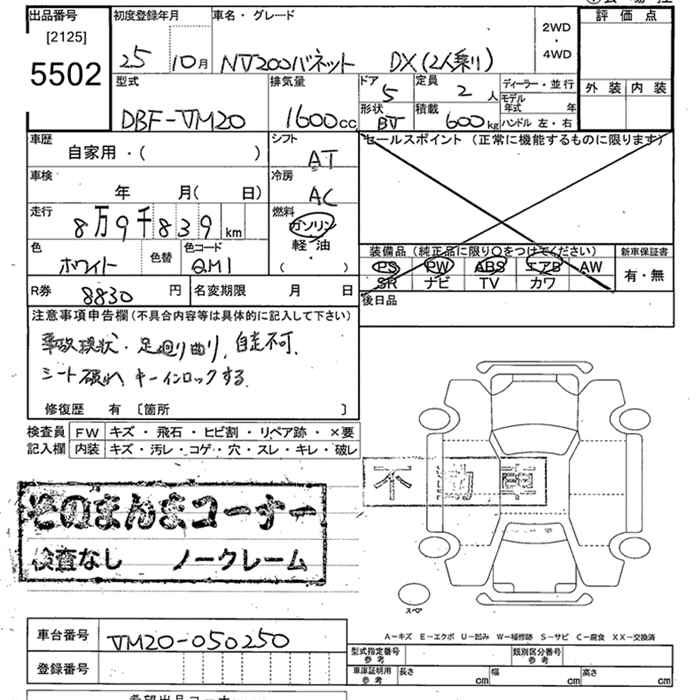 出品番号 初度登録年月 車名・グレード 評価点
[2125]
5502
25 10月 NV200バネット DX(2人乗り) 2WD・4WD
型式 排気量 ドア 定員 ディーラー・並行 外装 内装
DBF-VM20 1600cc 5 2人 モデル年式 年
形状 積載
BV 600kg ハンドル 左・右
車歴 シフト セールスポイント (正常に機能するものに限ります)
自家用・( ) AT
車検 冷房
年 月( 日) AC
走行 燃料
8万9千839km ガソリン
軽・油
( )
色 色替 色コード 装備品 (純正品に限り○をつけてください) 新車保証書
ホワイト QM1 PS PW ABS エアB AW 有・無
SR ナビ TV カワ
R券 8830円 名変期限 月 日 後日品
注意事項申告欄(不具合内容等は具体的に記入して下さい)
事故現状・足回り曲り,自走不可,
シート破れ キーインロックする.
修復歴 有 [箇所 ]
検査員 FW キズ・飛石・ヒビ割・リペア跡・×要
記入欄 内装 キズ・汚レ・コゲ・穴・スレ・キレ・破レ
不動車
そのまんまコーナー
検査なし ノークレーム
スペア
A-キズ E-エクボ U-凹み W-補修跡 S-サビ C-腐食 XX-交換済
車台番号 VM20-050250
型式指定番号 参考 類別区分番号 参考
登録番号 車庫証明用 参考 長さ cm 幅 cm 高さ cm
希望出品コーナー